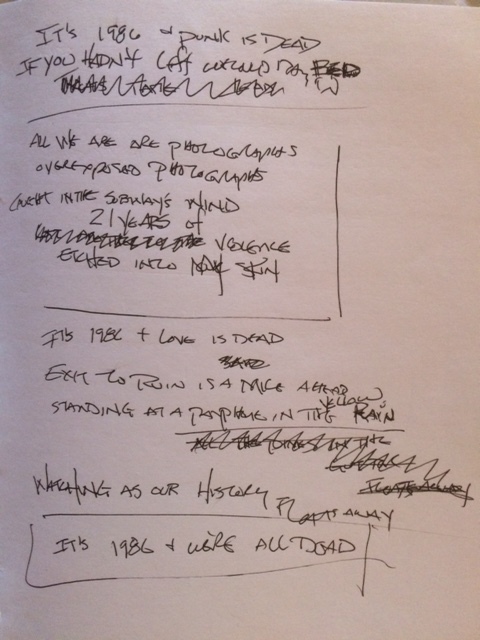 IT'S 1986 + PUNK IS DEAD
IF YOU HADN'T LEFT
ALL WE ARE ARE PHOTOGRAPHS
OVEREXPOSED PHOTOGRAPHS
CAUGHT IN THE SUBWAY'S WIND
21 YEARS OF
VIOLENCE
ETCHED INTO SKIN
IT'S 1986 + LOVE IS DEAD
EXIT TO RUIN IS A MILE AHEAD
STANDING AT A PAYPHONE IN THE YELLOW RAIN
WATCHING AS OUR HISTORY
FLOATS AWAY
IT'S 1986 + WE'RE ALL DEAD